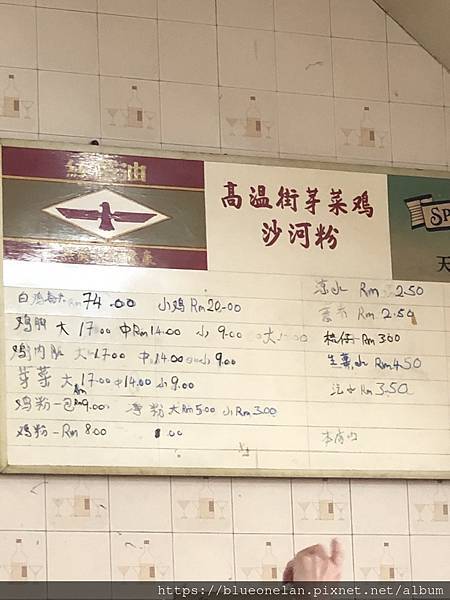 高温街芽菜鸡
沙河粉
SP
天
白鸡每只 RM 74.00 小鸡 RM 20.00
鸡脚 大 17.00 中 RM 14.00 小 9.00
鸡内脏 大 17.00 中 14.00 小 9.00
芽菜 大 RM 17.00 中 14.00 小 9.00
鸡粉一包 RM 9.00 净粉 大 RM 5.00 小 RM 3.00
鸡粉 - RM 8.00 .00
凉水 RM 2.50
RM 2.50
桔仔 - RM 3.00
生薑水 RM 4.50
汽水 RM 3.50
https://blueonelan.pixnet.net/album